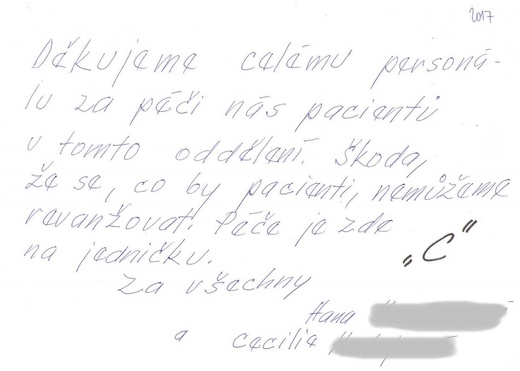 2017
Děkujeme celému personá-
lu za péči nás pacientů
v tomto oddělení. Škoda,
že se, co by pacienti, nemůžeme
revanžovat. Péče je zde
na jedničku.
„C"
Za všechny
Hana
a Cecilie